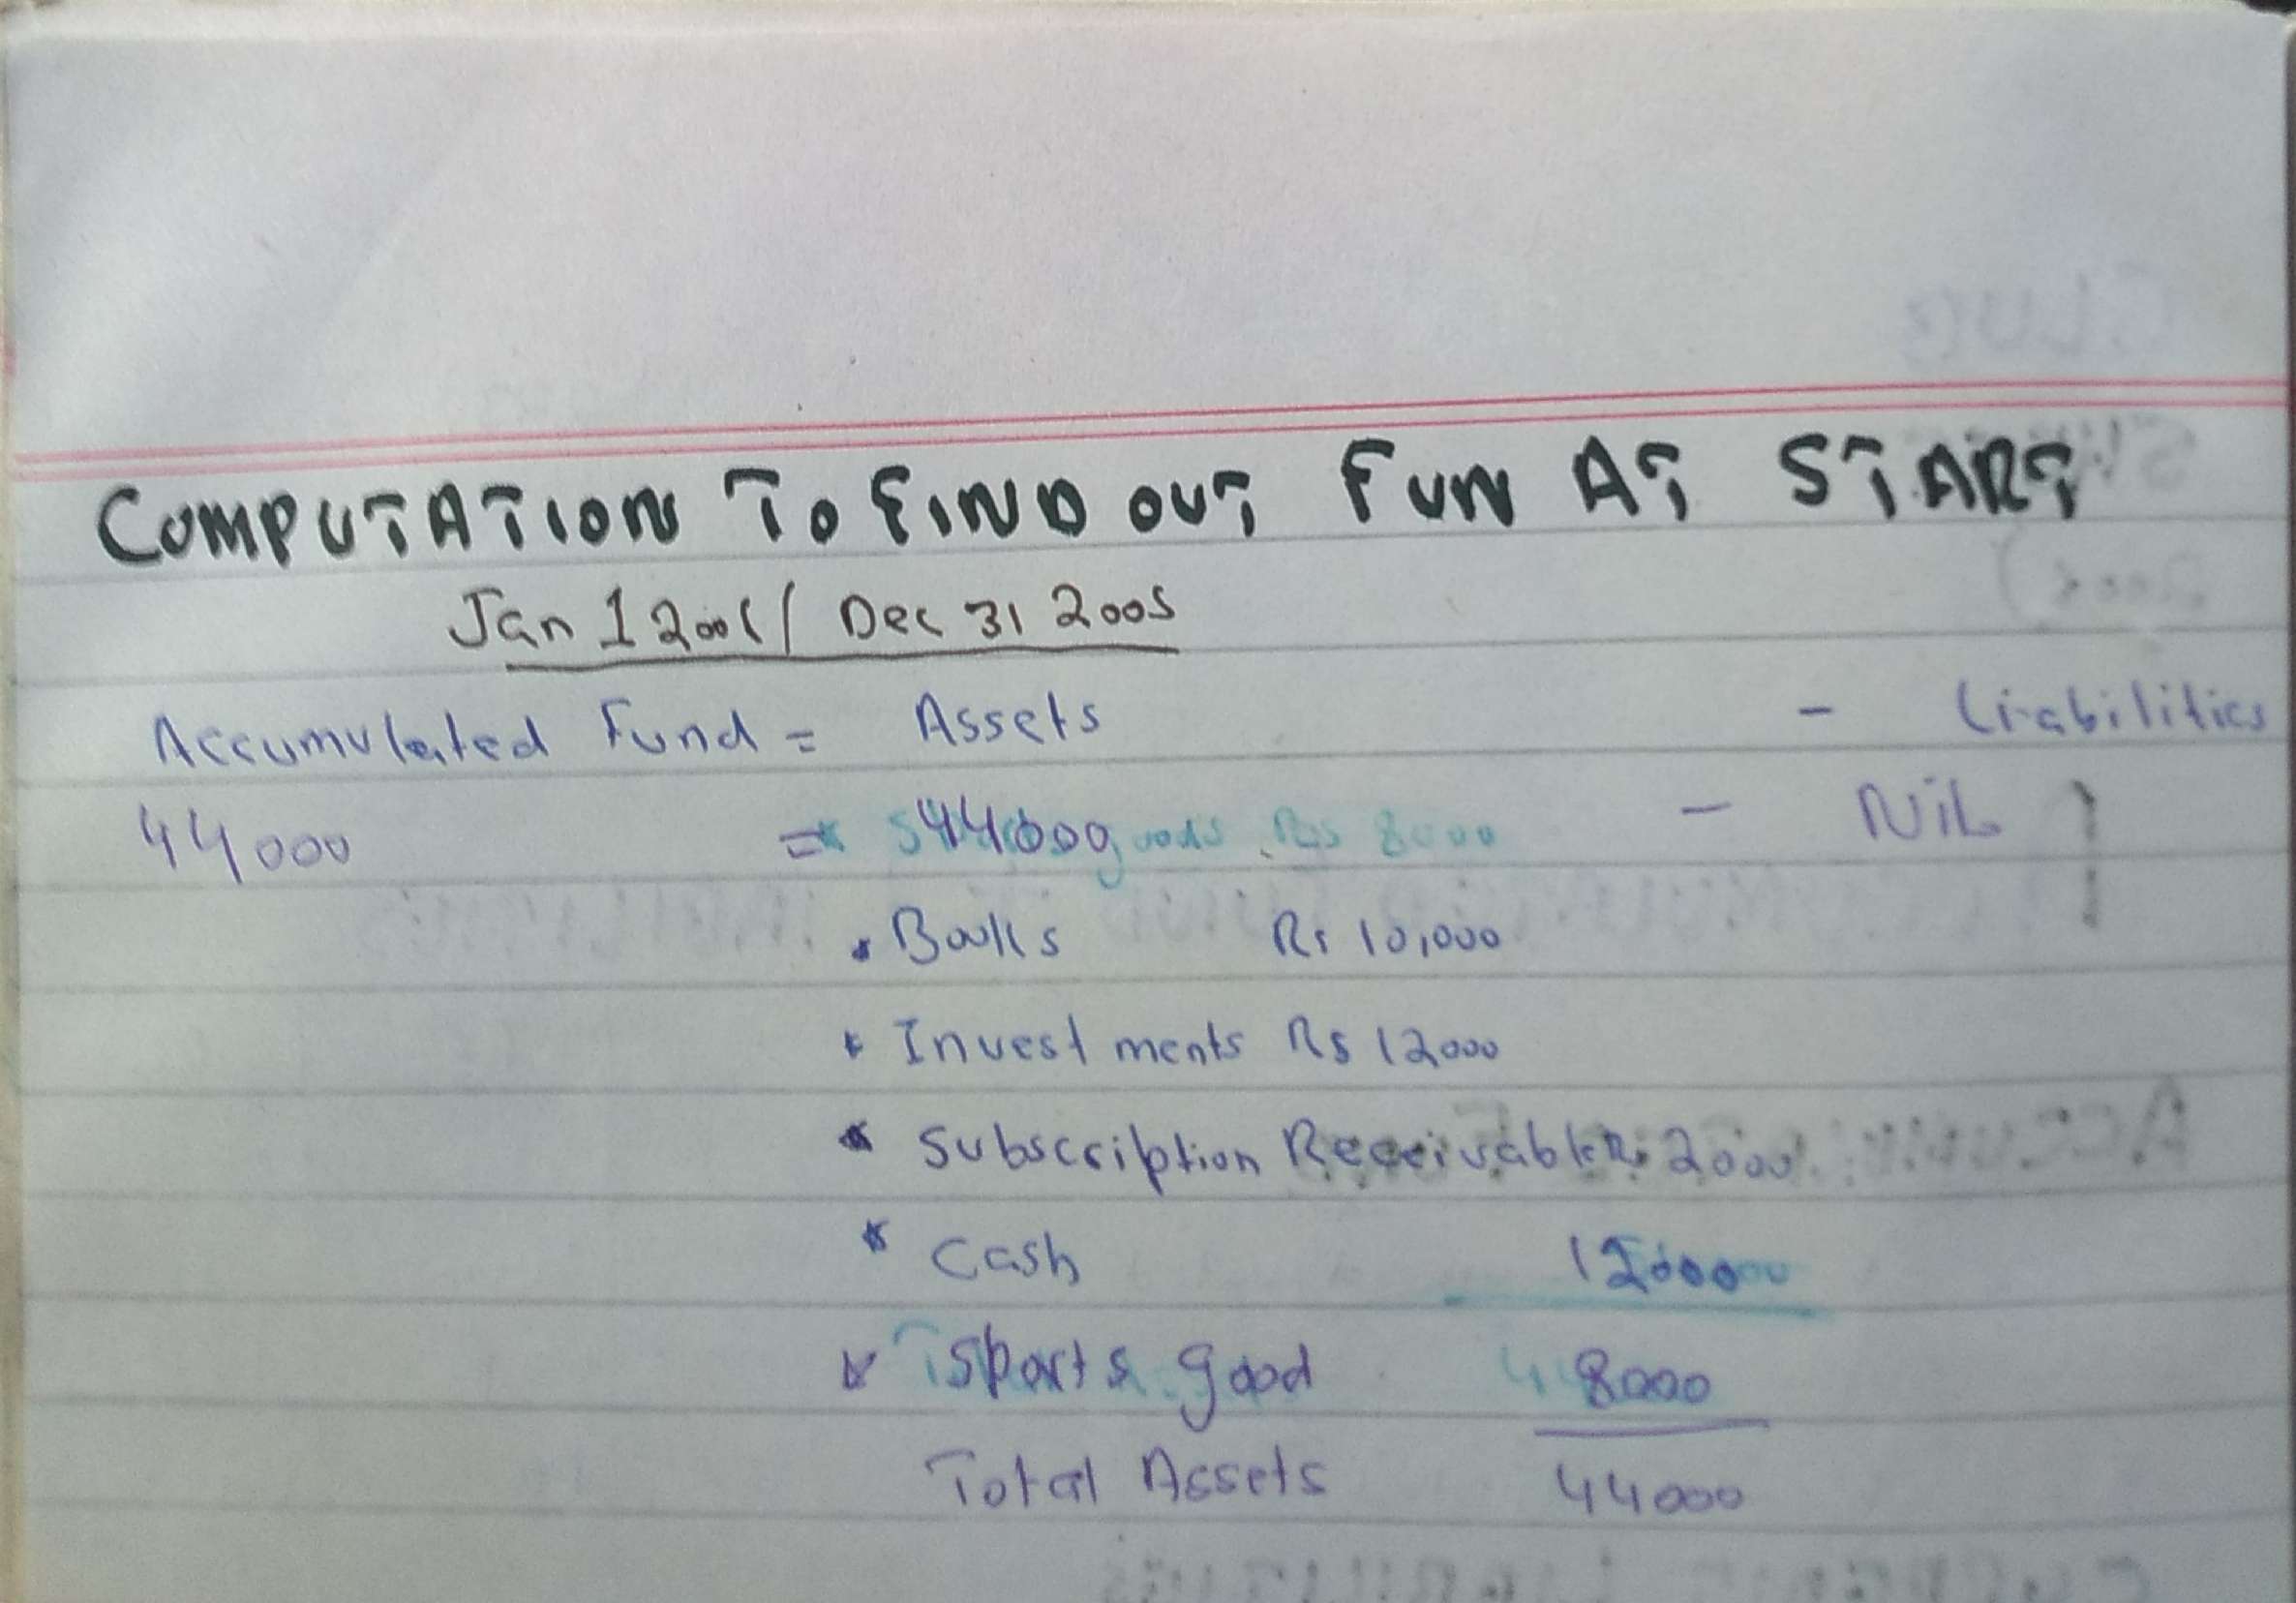 COMPUTATION TO FIND OUT FUN AT START
Jan 1 2006 / Dec 31 2005
Accumulated Fund = Assets - Liabilities
44000 = 44000 - NiL
Books Rs 10,000
Investments Rs 12000
Subscription Receivable Rs 2000
Cash 12000
Sports good 8000
Total Assets 44000